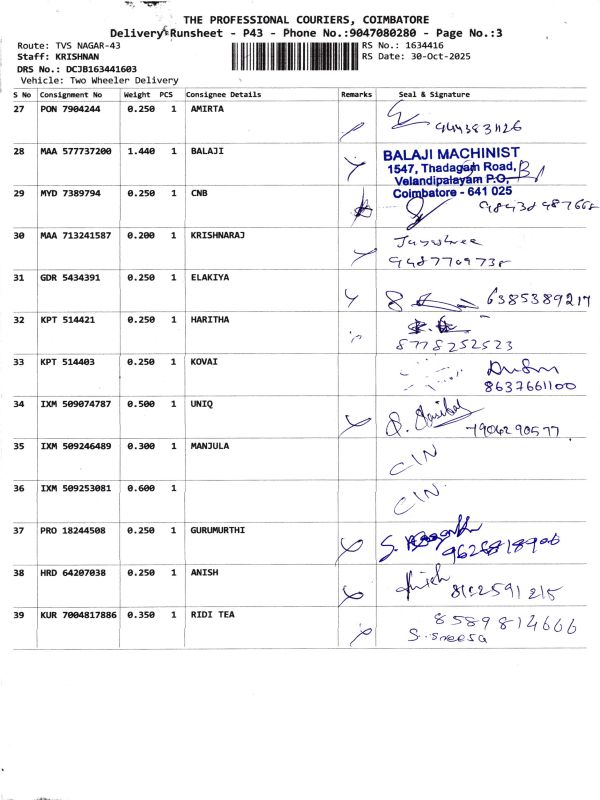 THE PROFESSIONAL COURIERS, COIMBATORE
Delivery Runsheet - P43 - Phone No.:9047080280 - Page No.:3
Route: TVS NAGAR-43 RS No.: 1634416
Staff: KRISHNAN RS Date: 30-Oct-2025
DRS No.: DCJB163441603
Vehicle: Two Wheeler Delivery
S No Consignment No Weight PCS Consignee Details Remarks Seal & Signature
27 PON 7904244 0.250 1 AMIRTA
28 MAA 577737200 1.440 1 BALAJI
BALAJI MACHINIST
1547, Thadagam Road,
Velandipalayam P.O,
Coimbatore - 641 025
29 MYD 7389794 0.250 1 CNB
30 MAA 713241587 0.200 1 KRISHNARAJ
Jayshree
9487709738
31 GDR 5434391 0.250 1 ELAKIYA
6385389217
32 KPT 514421 0.250 1 HARITHA
8778252523
33 KPT 514403 0.250 1 KOVAI
8637661100
34 IXM 509074787 0.500 1 UNIQ
7904290577
35 IXM 509246489 0.300 1 MANJULA
CIN
36 IXM 509253081 0.600 1
CIN
37 PRO 18244508 0.250 1 GURUMURTHI
38 HRD 64207038 0.250 1 ANISH
Anish
8102591215
39 KUR 7004817886 0.350 1 RIDI TEA
8589814666
S. Sneesa